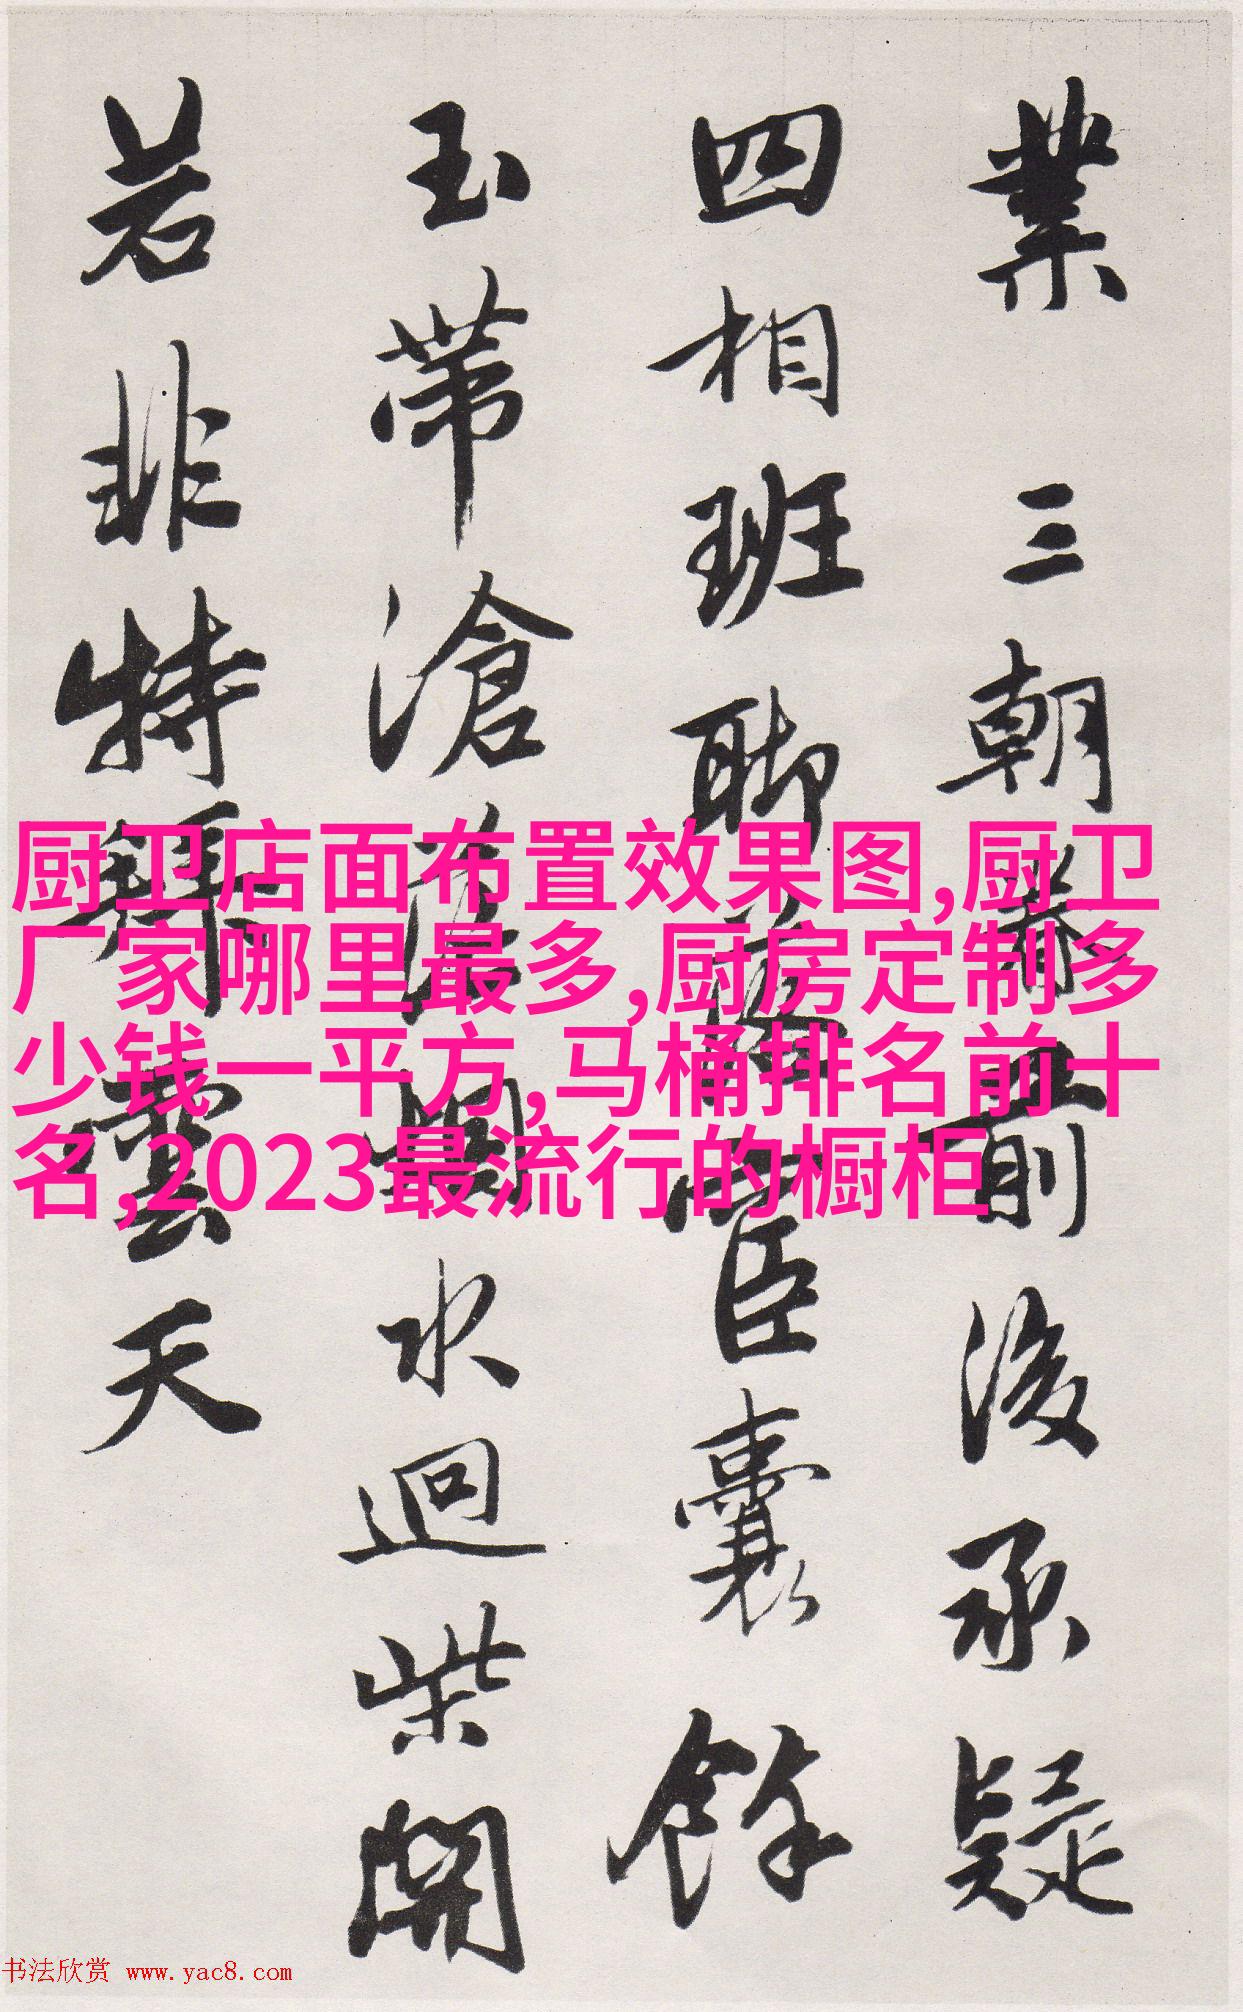 業三朝前後承疑
四相班聊臣囊餘
玉帶滄水迴柴開
若非特雲天
厨卫店面布置效果图,厨卫
厂家哪里最多,厨房定制多
少钱一平方,马桶排名前十
名,2023最流行的橱柜
书法欣赏 www.yac8.com